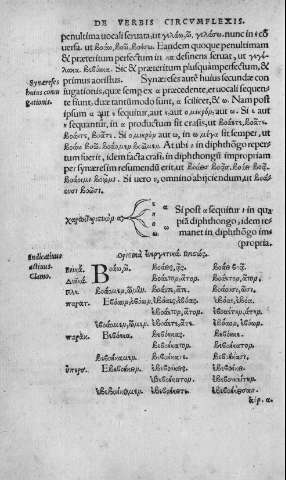 DE VERBIS CIRCVMFLEXIS.
penultima vocali servata ut γελάω ῶ, γελάσω. nunc in 
versa. ut βοάω, βοῶ, βοήσω. Eandem quoque penultimam
& præteritum perfectum in κα desinens servat, ut γεγέ
λακα. βεβόηκα. Sic & præteritum plusquamperfectum, &
primus aoristus. Synæreses autē huius secundæ con
Synæreses
huius coniu
gationis.
iugationis, quæ semp ex α præcedente, et vocali sequen
te sunt, duæ tantūmodo sunt, α scilicet, & ω. Nam post
ipsum α aut ε sequitur, aut η aut ο μικρόμ aut ω. Si ε aut
η sequantur, in α productum fit crasis, ut βοάετε, βοᾶτε.
βοάητε, βοᾶτε. Si ο μικρόμ aut ω, in ω μέγα fit semper, ut
βοάω βοῶ. βοάομεμ βοῶμεμ. At ubi ι in diphthōgo reper
tum fuerit, idem facta crasi, in diphthongū impropriam
per synæresim resumendū erit, ut
βοάοιμι βοῷμι. Si uero υ, omnino abijciendum, ut βοάου
σι βοῶσι.
Si post α sequitur ι in qua
piā diphthongo, idem re
manet in diphthōgo im
propria.
Indicatiuus
actiuus.
Clamo.
Ὁριστικὰ ἐνεργητικὰ
Ἑνικά. Βοάω, ῶ. βοάεις, ᾷς. βοάει βοᾷ.
Δυϊκά. βοάετομ, ᾶτομ. βοάετομ, ᾶτομ.
πλη. βοάομεμ, ῶμεμ. βοάετε, ᾶτε. βοάουσι, ῶσι.
παρατ. Ἐβόαομ, ἐβόωμ. ἐβόαες, ἐβόας. ἐβόαε, ἐβόα.
ἐβοάετομ, ᾶτομ. ἐβοαέτημ, άτημ.
ἐβοάομεμ, ῶμεμ. ἐβοάετε, ᾶτε. ἐβόαομ, ἐβόωμ.
παρακ. Βεβόηκα. βεβόηκας. βεβόηκε.
βεβοήκατομ. βεβοήκατομ.
βεβοήκαμεμ. βεβοήκατε. βεβοήκασι.
ὑπερσ. Ἐβεβοήκειμ. ἐβεβοήκεις. ἐβεβοήκει.
ἐβεβοήκειτομ. ἐβεβοηκείτημ.
ἐβεβοήκειμεμ. ἐβεβοήκειτε. ἐβεβοήκεισαμ.